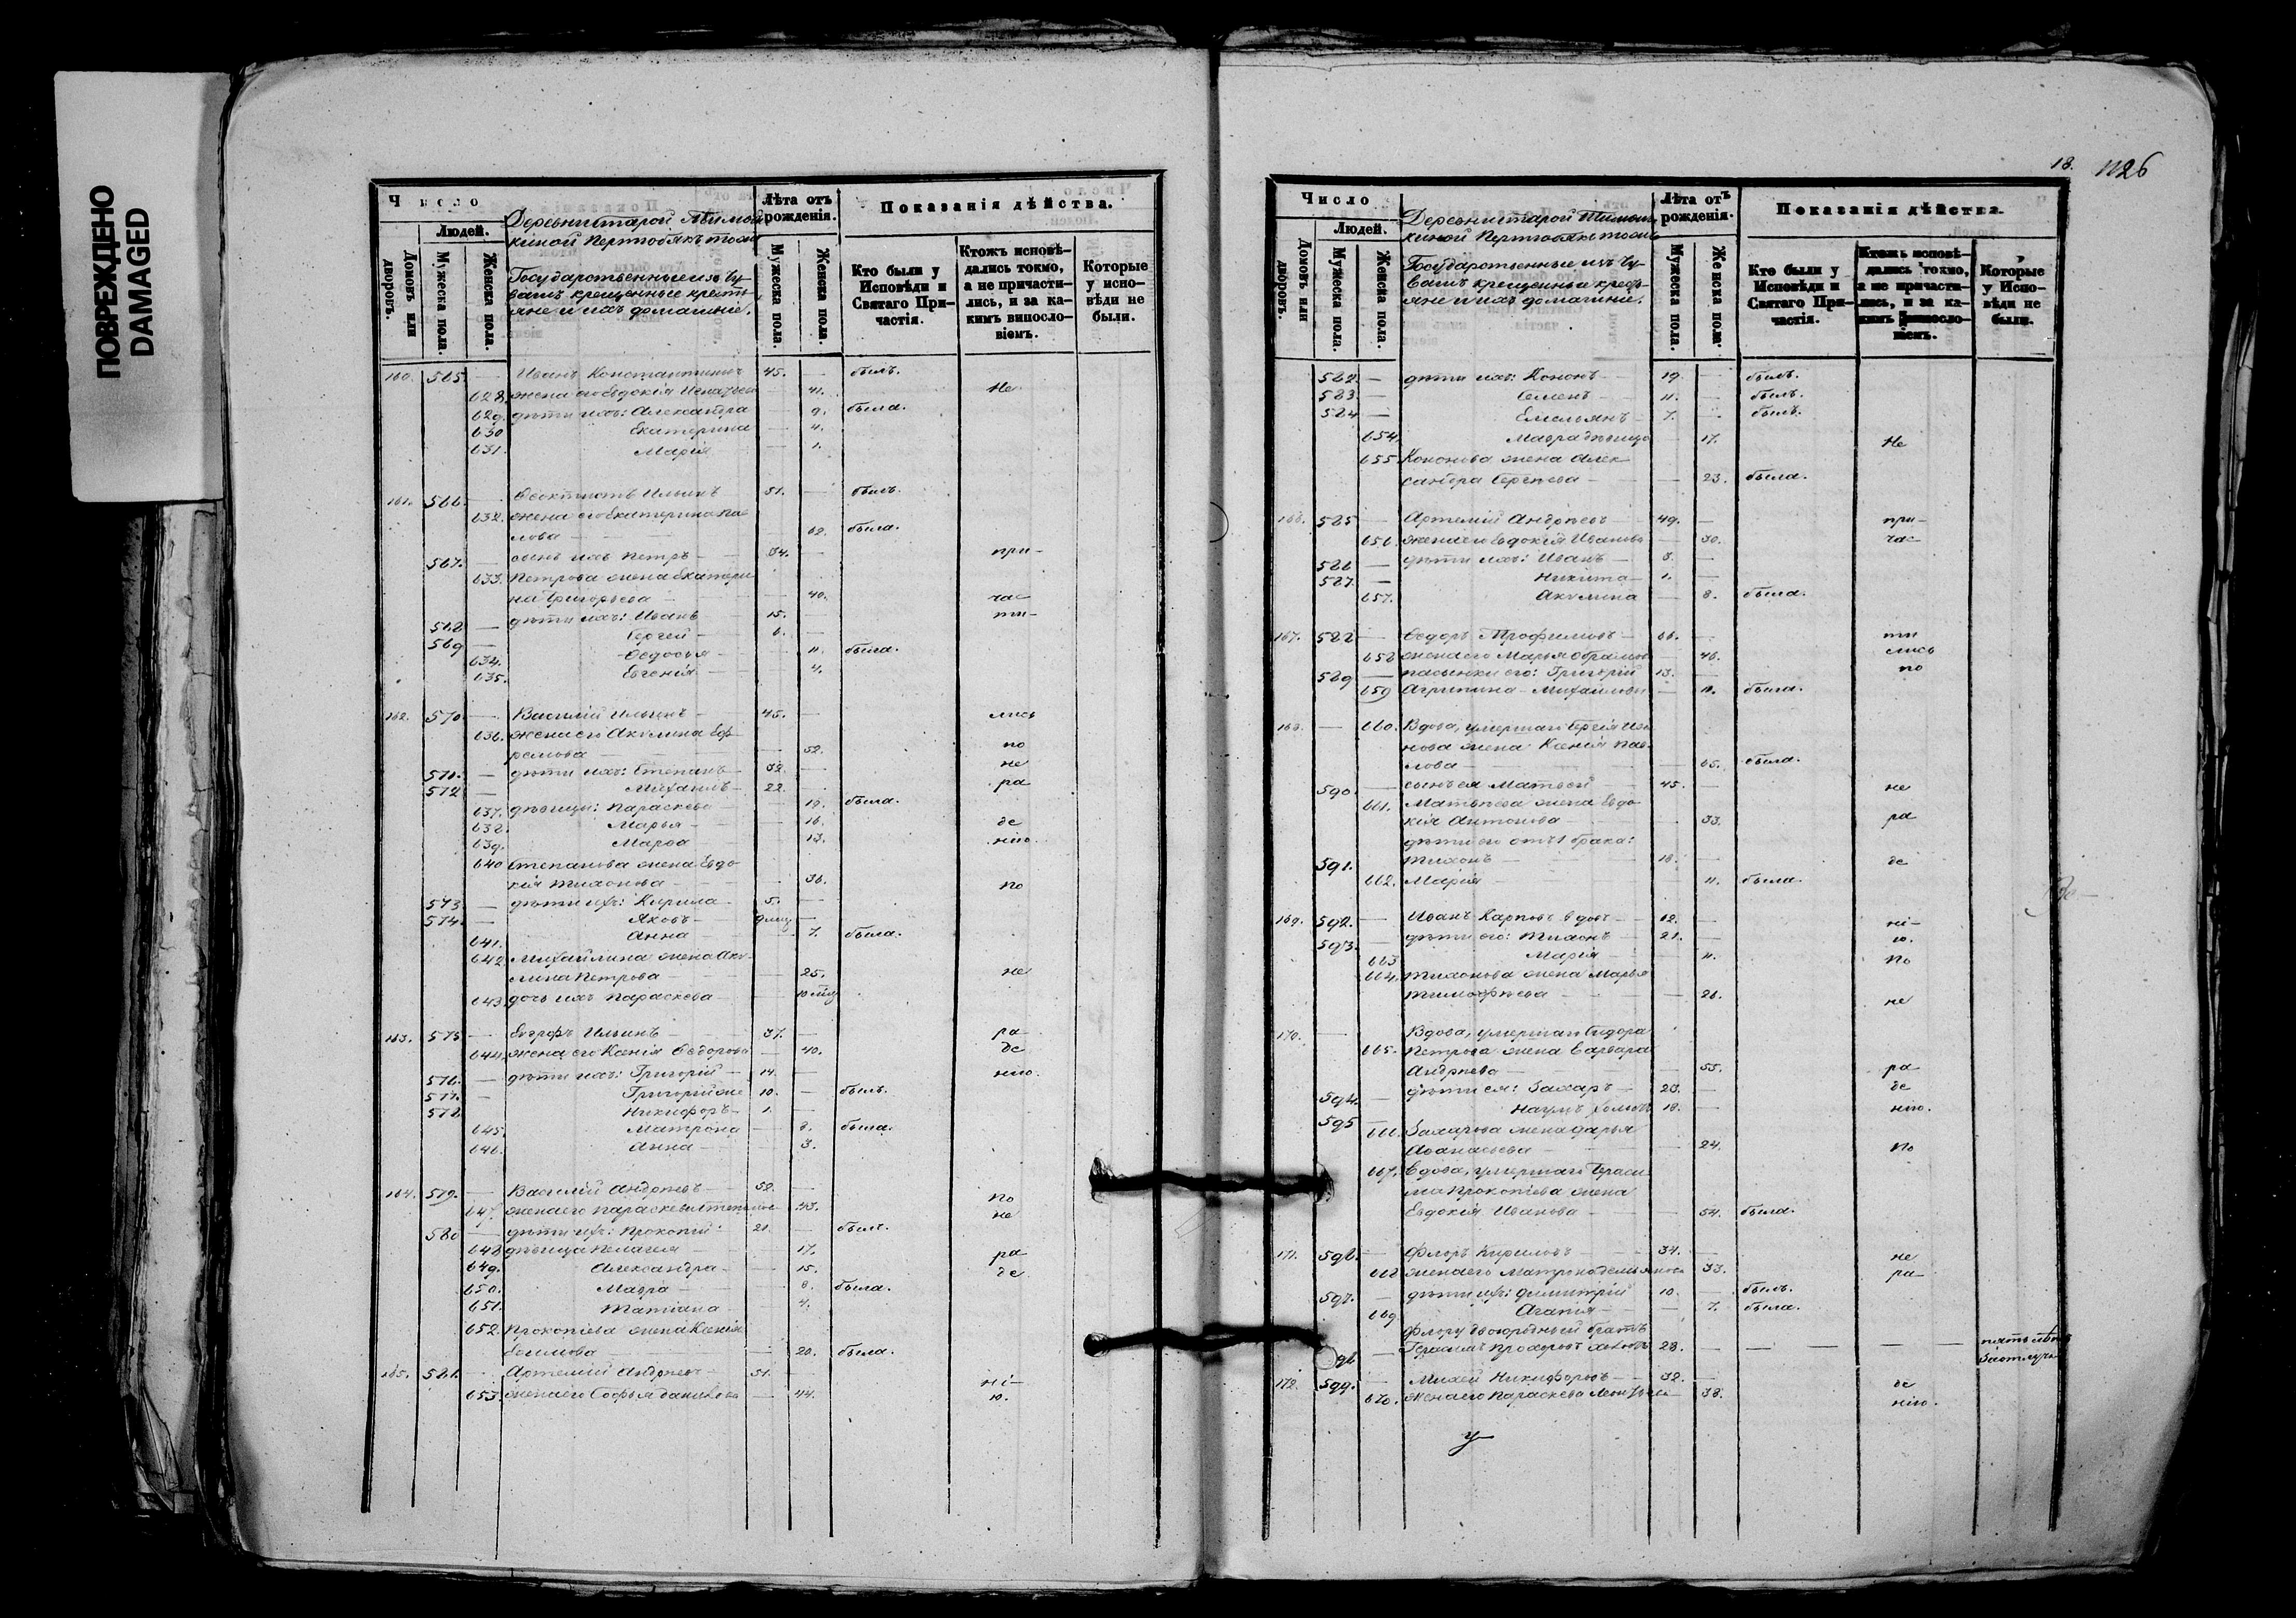 ПОВРЕЖДЕНО
DAMAGED
Число
Людей.
Домовъ или дворовъ.
Мужеска пола.
Женска пола.
Деревни Старой
киной
Государственные изъ Чу-
вашъ крещенные кресть-
яне и ихъ домашніе.
Лѣта отъ рожденія.
Мужеска пола.
Женска пола.
Показанія дѣйства.
Кто были у Исповѣди и Святаго Причастія.
Ктожъ исповѣ-
дались токмо,
а не причасти-
лись, и за ка-
кимъ винословіемъ.
Которые у испо-
вѣди не были.
160. 565. — Иванъ Константиновъ 45. — былъ.
628. жена его Евдокія — 41. Не
629. дѣти ихъ: Александра — 9. была.
630 Екатерина — 4.
631. Марія — 1.
161. 566. — Феоктистъ Ильинъ 51. — былъ.
632. жена его Екатерина Па-
лова — 62. была.
567. — сынъ ихъ Петръ — 34. — при-
633. Петрова жена Екатери-
на Григорьева — 40. час-
568 — дѣти ихъ: Иванъ 15. — ти-
569 — Сергей — 6. —
634. Федосья — 11. была.
635. Евгенія — 4.
162. 570. — Василій Ильинъ — 45. — лись
636. жена его Акулина Еф-
ремова — 52. по
571. — дѣти ихъ: Степанъ 32. — не
572 — Михаилъ — 22. ра
637. дѣвицы: Параскева — 19. была.
638. Марья — 16. де
639. Марфа — 13. нію.
640 Степанова жена Евдо-
кія Тихонова — 36. По
573. — дѣти ихъ: Кирила — 5. —
574. — Яковъ —
641. Анна — 7. была.
642 Михайлина жена Аку-
лина Петрова — 25. не
643. дочь ихъ Параскева — 10 мѣс
163. 575 — Евграфъ Ильинъ 37. — ра
644. жена его Ксенія Федорова — 40. де
576. — дѣти ихъ: Григорій — 14. — нію.
577. — Григорій же 10. — былъ.
578. Никифоръ — 1. —
645. Матрона — 8. была.
646. Анна — 3.
164. 579. — Василій Андреевъ — 52. — По
647. жена его Параскева Степанова 43. не
580 — дѣти ихъ: Прокопій 21. — былъ.
648 дѣвица Пелагея — 17. ра
649. Александра — 15. де
650. Мавра — 8. была.
651. Татіана — 4.
652. Прокопіева жена Ксенія
— 20. была.
165. 581. — Артемій Андреевъ — 51. — ні-
653. жена его Софья Данилова — 44. ю.
18. 1126
Число
Людей.
Домовъ или дворовъ.
Мужеска пола.
Женска пола.
Деревни Старой
киной
Государственные изъ Чу-
вашъ крещенные кресть-
яне и ихъ домашніе.
Лѣта отъ рожденія.
Мужеска пола.
Женска пола.
Показанія дѣйства.
Кто были у Исповѣди и Святаго Причастія.
Ктожъ исповѣ-
дались токмо,
а не причасти-
лись, и за ка-
кимъ винословіемъ.
Которые у Испо-
вѣди не были.
582. — дѣти ихъ: Кононъ — 19. — былъ.
583. — Семенъ — 11. — былъ.
584 — Емельянъ — 7. — былъ.
654. Мавра дѣвица — 17. Не
655. Кононова жена Алек-
сандра Сергѣева — 23. была.
166. 585 — Артемій Андреевъ — 49. — при-
656. жена его Евдокія Иванова — 30. час-
586 — дѣти ихъ: Иванъ — 3. —
587. — Никита — 1. —
657. Акулина — 8. была.
167. 588 — Федоръ Трофимовъ — 66. — ти
658 жена его Марья — 46. лись
589 — пасынки его: Григорій 13. — по
659 Агрипина Михайлова — 11. была.
168. — 660. Вдова, умершаго Сергія
нова жена Ксенія Пав-
лова — 65. была.
590. — сынъ ея Матвей — 45. — не
661. Матвеева жена Евдо-
кія Антонова — 33. ра
дѣти его отъ 1 брака:
591. Тихонъ — 18. — де
662. Марія — 11. была.
169. 592. — Иванъ Карповъ вдовъ — 62. — ні-
593. — дѣти его: Тихонъ — 21. — ю.
663 Марія — 11. По
664. Тихонова жена Марья
Тимофѣева — 26. не
170. — Вдова, умершаго Сидора
665. Петрова жена Варвара
Андреева — 55. ра
594. — дѣти ея: Захаръ — 23. — де
595 — Наумъ холостъ 18. — нію.
666. Захарова жена Дарья
Афанасьева — 24. По
667. Вдова, умершаго Гераси-
ма Прокопіева жена
Евдокія Иванова — 54. была.
171. 596. — Флоръ Кириловъ — 34. — не
668 жена его Матрона Демьянова 33. ра
597. — дѣти ихъ: Димитрій 10. — былъ.
669. Агапія — 7. была.
Флору двоюродный братъ
598 — Герасимъ Прохоровъ 28. — — — — пять лѣтъ
въ отлучкѣ
172. 599. — Михей Никифоровъ — 32. — де
670. жена его Параскева 38. нію.